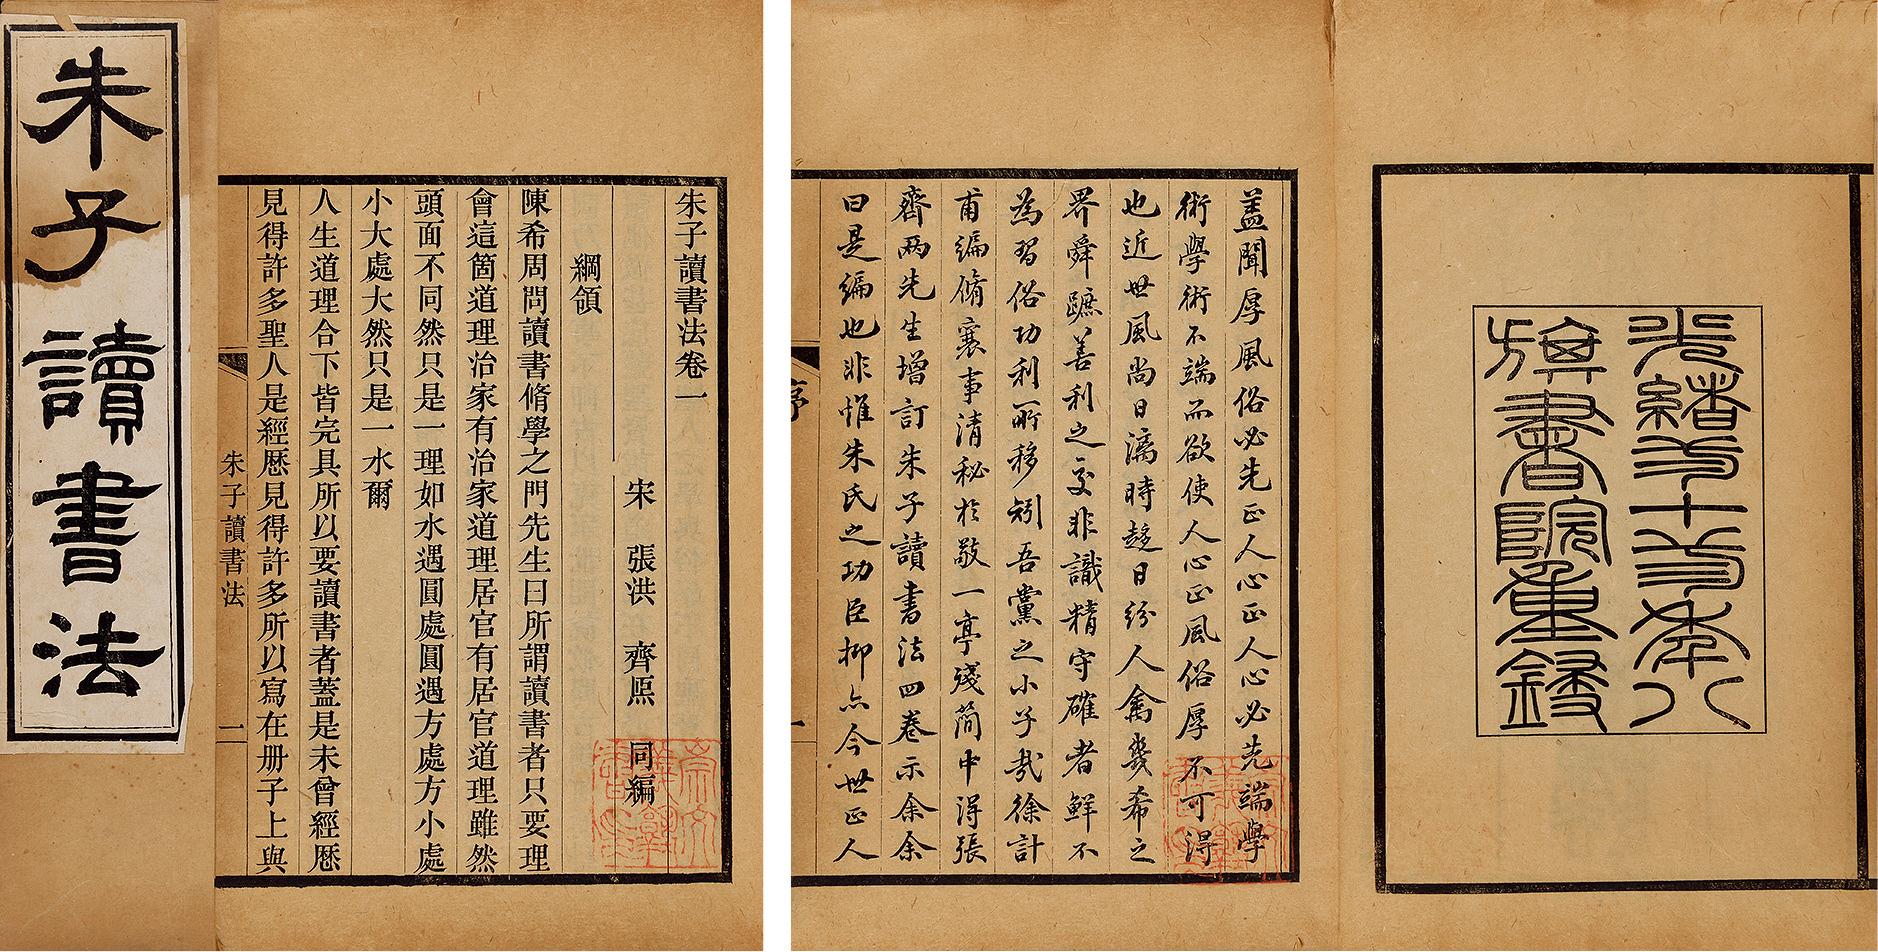 朱子讀書法
朱子讀書法卷一
宋 張洪 齊熙 同編
綱領
陳希周問讀書脩學之門先生曰所謂讀書者只要理
會這箇道理治家有治家道理居官有居官道理雖然
頭面不同然只是一理如水遇圓處圓遇方處方小處
小大處大然只是一水爾
人生道理合下皆完具所以要讀書者蓋是未曾經歷
見得許多聖人是經歷見得許多所以寫在册子上與
朱子讀書法 一
光緒十年八
旗書院重鋟
蓋聞厚風俗必先正人心正人心必先端學
術學術不端而欲使人心正風俗厚不可得
也近世風尚日漓時趨日紛人禽幾希之
界舜蹠善利之交非識精守確者鮮不
為習俗功利所移矧吾黨之小子哉徐計
甫編脩襄事清秘於敬一亭殘簡中得張
齊兩先生增訂朱子讀書法四卷示余余
曰是編也非惟朱氏之功臣抑亦今世正人
序 一